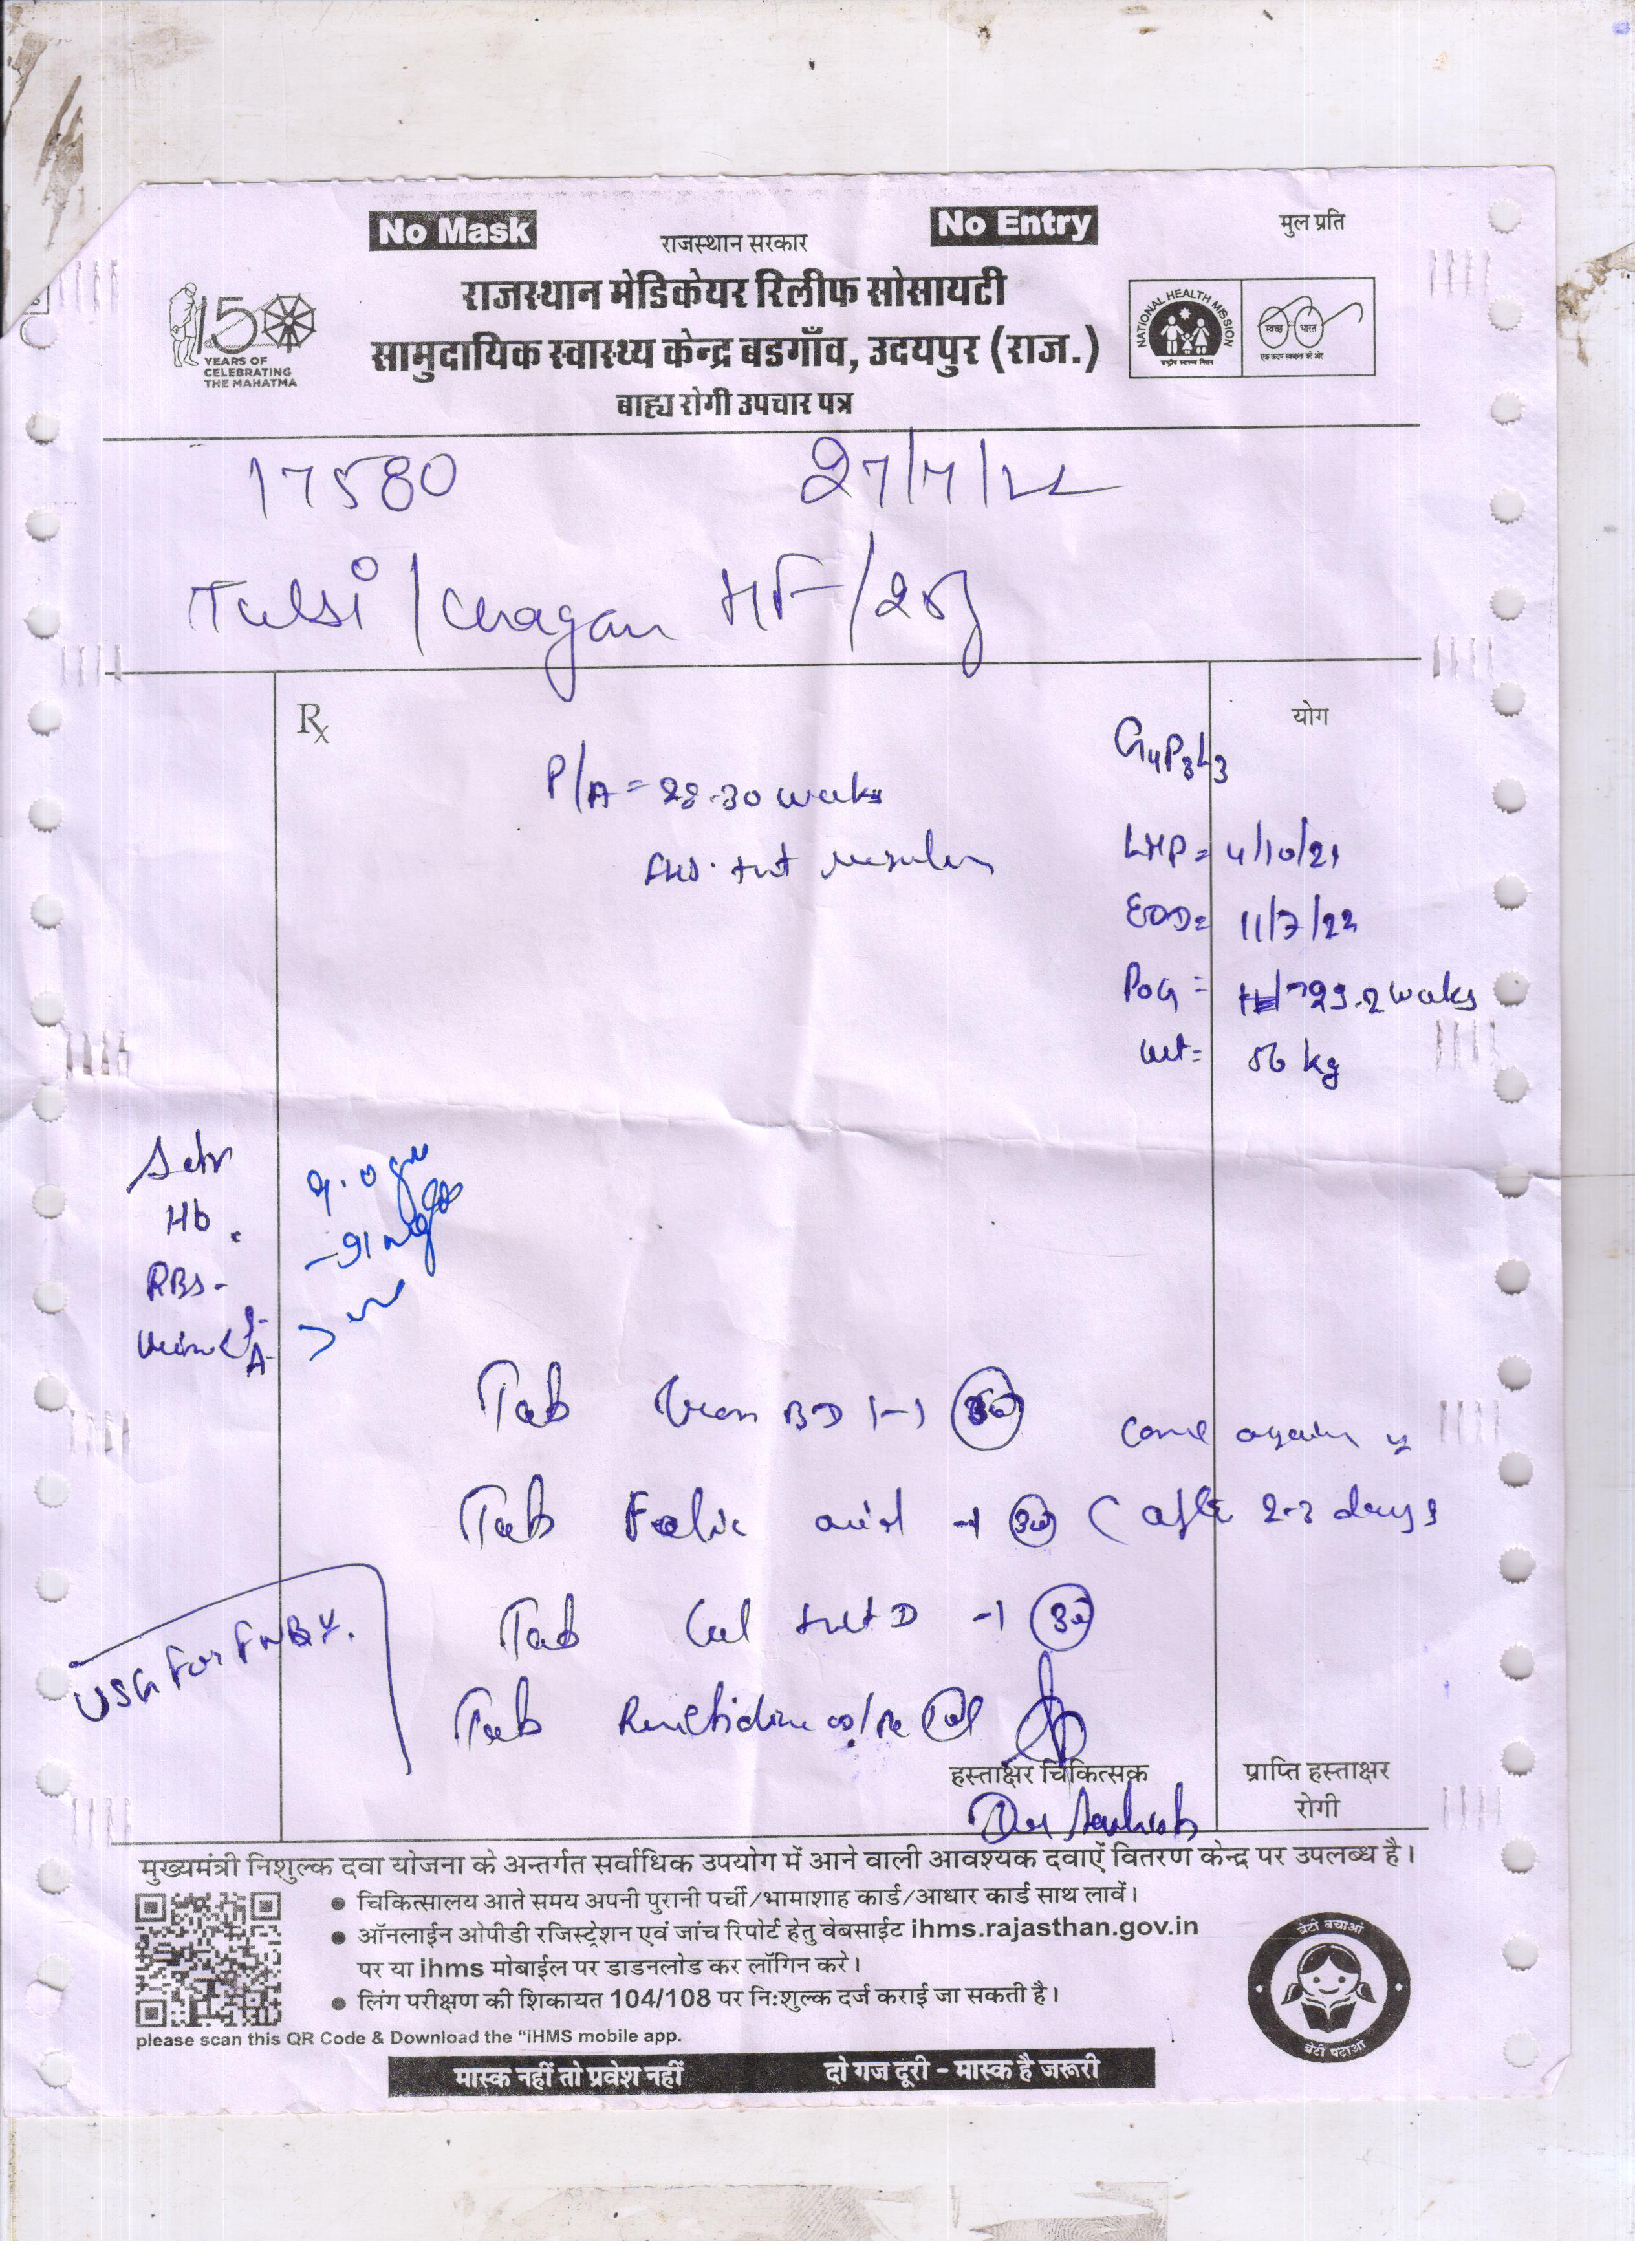 No Mask
No Entry
मुल प्रति
राजस्थान सरकार
राजस्थान मेडिकेयर रिलीफ सोसायटी
सामुदायिक स्वास्थ्य केन्द्र बडगाँव, उदयपुर (राज.)
बाह्य रोगी उपचार पत्र
150
YEARS OF
CELEBRATING
THE MAHATMA
NATIONAL HEALTH MISSION
राष्ट्रीय स्वास्थ्य मिशन
स्वच्छ भारत
एक कदम स्वच्छता की ओर
17580 27/7/22
Tulsi / Chagan HF/25y
Rx
योग
G4P3L3
P/A = 28-30 weeks
FHS. +nt regular
LMP = 4/10/21
EDD = 11/7/22
POG = 29.2 weeks
wt = 56 kg
Adv
Hb. 9.0 gm
RBS - 91 mg
Urine S A
Tab Iron BD 1-1 30
come again
Tab Folic acid -1 30 (after 2-3 days
Tab Cal +vit D -1 30
USG For FWB
Tab Ranitidine
हस्ताक्षर चिकित्सक
प्राप्ति हस्ताक्षर
रोगी
मुख्यमंत्री निशुल्क दवा योजना के अन्तर्गत सर्वाधिक उपयोग में आने वाली आवश्यक दवाऐं वितरण केन्द्र पर उपलब्ध है।
● चिकित्सालय आते समय अपनी पुरानी पर्ची/भामाशाह कार्ड/आधार कार्ड साथ लावें।
● ऑनलाईन ओपीडी रजिस्ट्रेशन एवं जांच रिपोर्ट हेतु वेबसाईट ihms.rajasthan.gov.in
पर या ihms मोबाईल पर डाडनलोड कर लॉगिन करे।
● लिंग परीक्षण की शिकायत 104/108 पर निःशुल्क दर्ज कराई जा सकती है।
please scan this QR Code & Download the "iHMS mobile app.
बेटी बचाओ
बेटी पढाओ
मास्क नहीं तो प्रवेश नहीं दो गज दूरी - मास्क है जरूरी